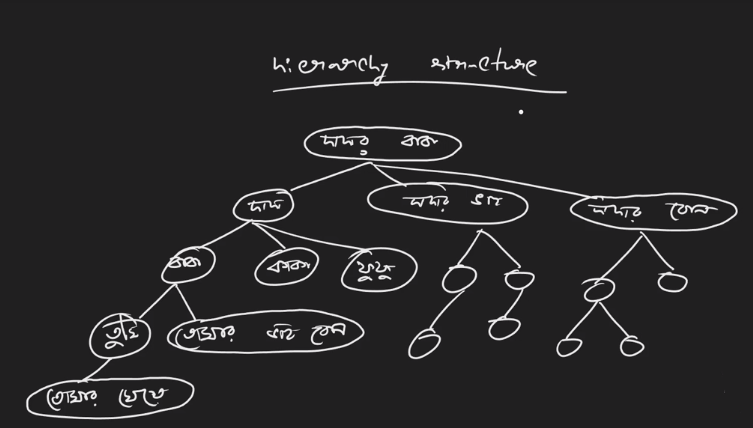 hierarchy structure
দাদার বাবা
দাদা
দাদার ভাই
দাদার বোন
বাবা
কাকা
ফুফু
তুমি
তোমার ভাই বোন
তোমার মেয়ে